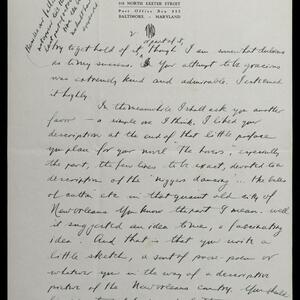 110 NORTH EXETER STREET
Post Office Box 935
BALTIMORE - MARYLAND
2
a part of it,
try to get hold of it, though I am somewhat dubious
as to my success. Your attempt to be gracious
was extremely kind and admirable. I esteemed
it highly.
In the meanwhile I shall ask you another
favor – a simple one I think. I liked your
description at the end of that little preface
you plan for your novel "The horses", especially
the part, the few lines to be exact, devoted to a
description of the "niggers dancing"... the bales
of cotton etc in that quaint old city of
New Orleans You know the part I mean. well
it suggested an idea to me, a fascinating
idea! And that is that you write a
little sketch, a sort of prose-poem or
whatever you in the way of a descriptive
picture of the New Orleans country. You